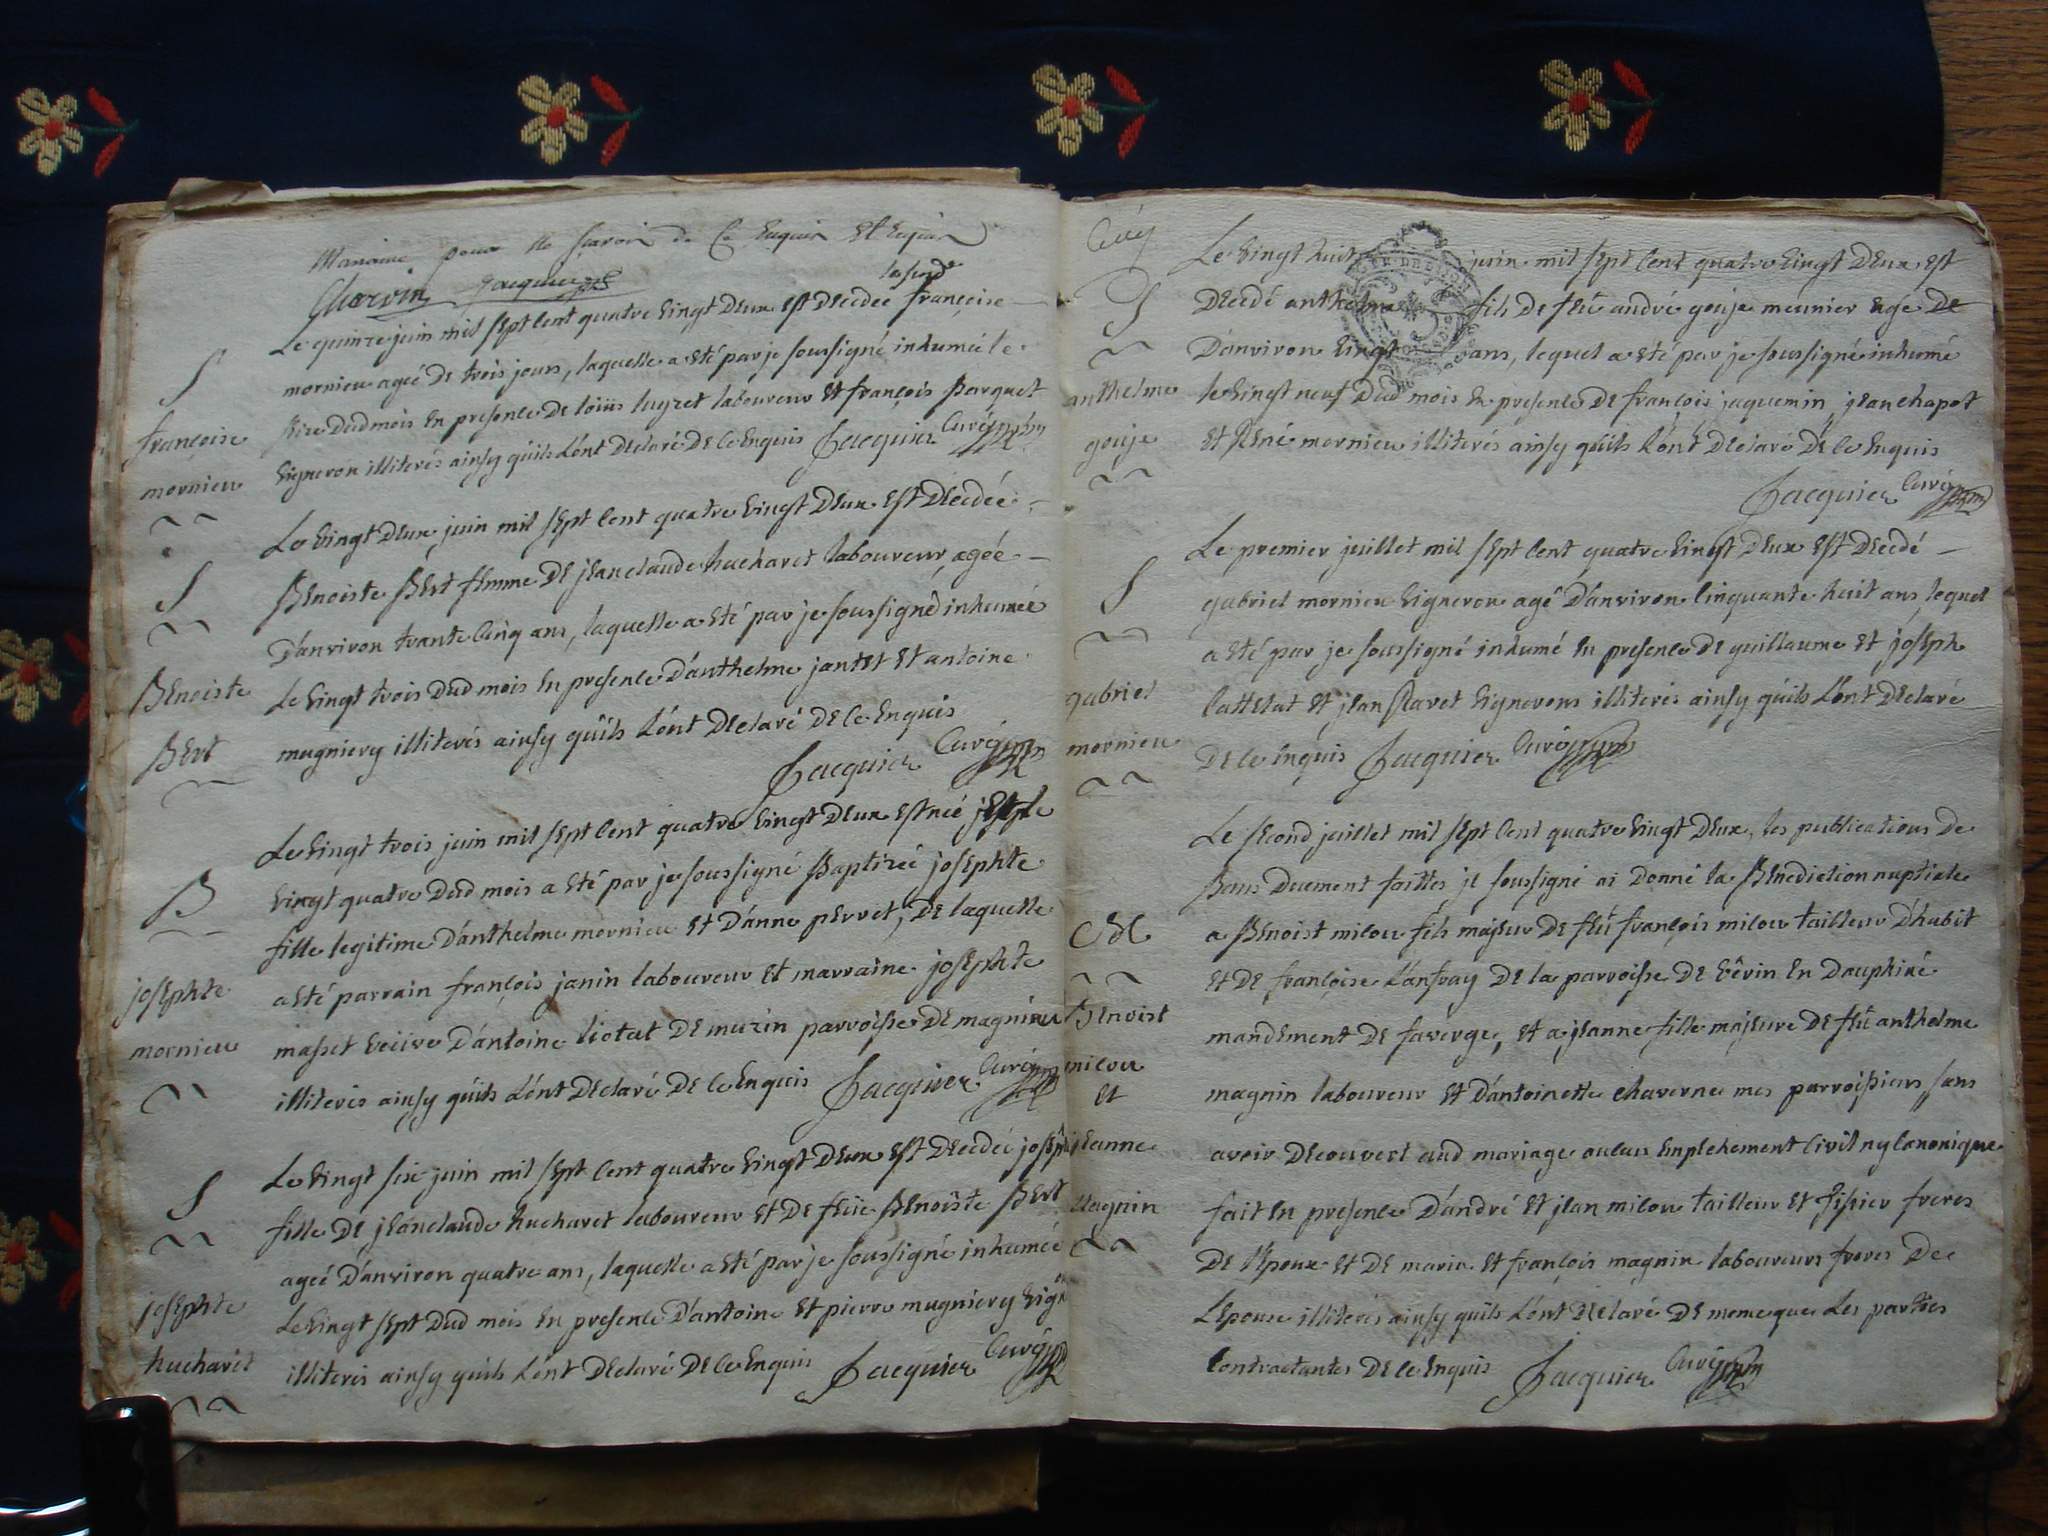 Maraine pour ne sçavoir de ce Enquis Et Enjoin
Charvin Jacquier
Le quinze juin mil sept cent quatre vingt Deux est Décédée françoise
mornieu ageé De trois jours, laquelle a eté par je soussigné inhumée le
seize Dud mois En presence De loüis luyzet laboureur et françois Parquet
vigneron illiterés ainsy quils l'ont Declaré De ce Enquis Jacquier Curé
S
françoise
mornieu
Le vingt Deux juin mil sept cent quatre vingt Deux est Décédée
Benoiste Bert femme De jeanclaude hucharet laboureur, agée
D'anviron trante cinq ans, laquelle a eté par je soussigné inhumée
le vingt trois Dud mois En presence D'anthelme jantet et antoine
mugniery illiterés ainsy quils l'ont Declaré De ce Enquis
Jacquier Curé
S
Benoiste
Bert
Le vingt trois juin mil sept cent quatre vingt Deux est née et le
vingt quatre Dud mois a eté par je soussigné Baptizée josephte
fille legitime D'anthelme mornieu et D'anne perret, De laquelle
a eté parrain françois janin laboureur et marraine josephte
masset veüve D'antoine liotat De murin parroisse De magnieu
illiterés ainsy quils l'ont Declaré De ce Enquis Jacquier Curé
B
josephte
mornieu
Le vingt six juin mil sept cent quatre vingt Deux est Décédée joseph
fille De jeanclaude hucharet laboureur et De feüe Benoiste Bert
ageé D'anviron quatre ans, laquelle a eté par je soussigné inhumée
le vingt sept Dud mois En presence D'antoine et pierre mugniery vign
illiterés ainsy quils l'ont Declaré De ce Enquis Jacquier Curé
S
josephte
hucharet
Le vingt huit juin mil sept cent quatre vingt Deux est
Decedé anthelme fils De feü andré gouje meunier age De
D'anviron vingt ans, lequel a eté par je soussigné inhumé
le vingt neuf Dud mois En presence De françois jaquemin, jean chapot
et René mornieu illiterés ainsy quils l'ont Declaré De ce Enquis
Jacquier Curé
S
anthelme
gouje
Le premier juillet mil sept cent quatre vingt Deux est Decedé
gabriel mornieu vigneron agé D'anviron cinquante huit ans, lequel
a eté par je soussigné inhumé En presence De guillaume et joseph
cattelat et jean Ravet vignerons illiterés ainsy quils l'ont Declaré
De ce Enquis Jacquier Curé
S
gabriel
mornieu
Le second juillet mil sept cent quatre vingt Deux, les publications De
Bans Duement faittes je soussigné ai Donné la Benediction nuptiale
a Benoist milou fils majeur De feü françois milou tailleur D'habit
et De françoise Lanfray De la parroisse De vêvin En Dauphiné
mandement De faverge, et a jeanne fille majeure De feü anthelme
magnin laboureur et D'antoinette chaverne mes parroissiens, sans
avoir Decouvert aud mariage aucun Enpêchement Civil ny Canonique
fait En presence D'andré et jean milou tailleur et tissier freres
De l'Epoux et De marin et françois magnin laboureurs freres De
L'Epouse illiterés ainsy quils l'ont Declaré De meme que les parties
Contractantes De ce Enquis Jacquier Curé
M
Benoist
milou
et
jeanne
Magnin